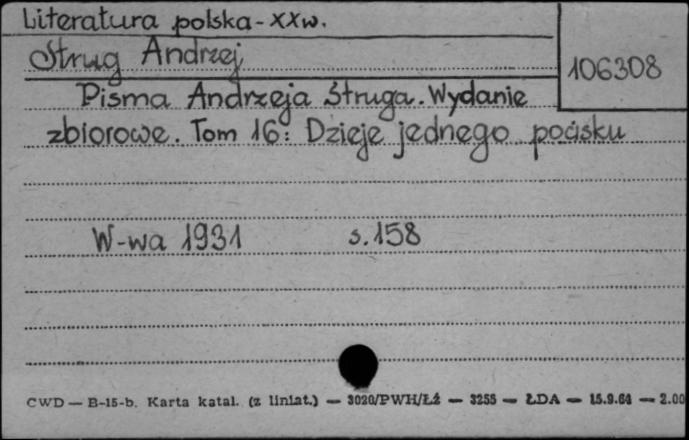 Literatura polska - XXw.
Strug Andrzej
106308
Pisma Andrzeja Struga. Wydanie
zbiorowe. Tom 16: Dzieje jednego pocisku
W-wa 1931 s. 158
CWD — B-15-b. Karta katal. (z liniat.) — 3020/PWH/Łź — 3255 — ŁDA — 15.9.64 — 2.00